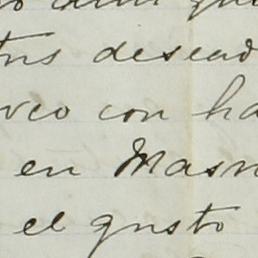 tus desead
veo con ha
en Masn
el gusto